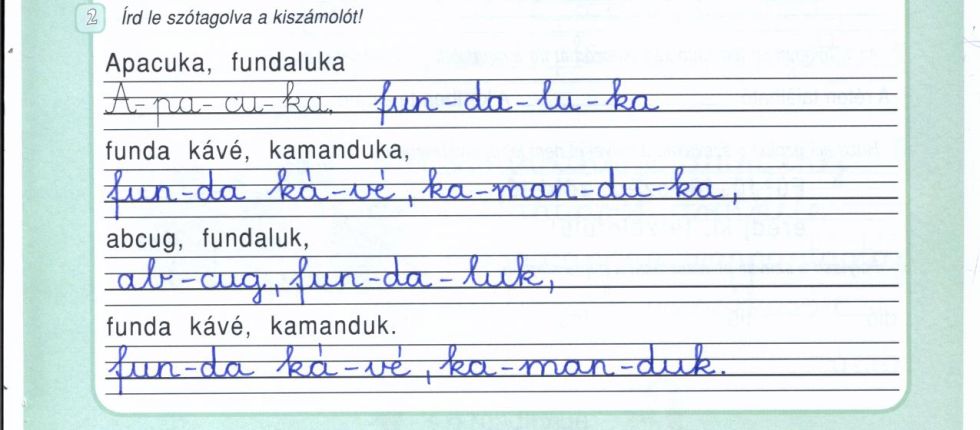 2 Írd le szótagolva a kiszámolót!
Apacuka, fundaluka
A-pa-cu-ka, fun-da-lu-ka
funda kávé, kamanduka,
fun-da ká-vé, ka-man-du-ka,
abcug, fundaluk,
ab-cug, fun-da-luk,
funda kávé, kamanduk.
fun-da ká-vé, ka-man-duk.